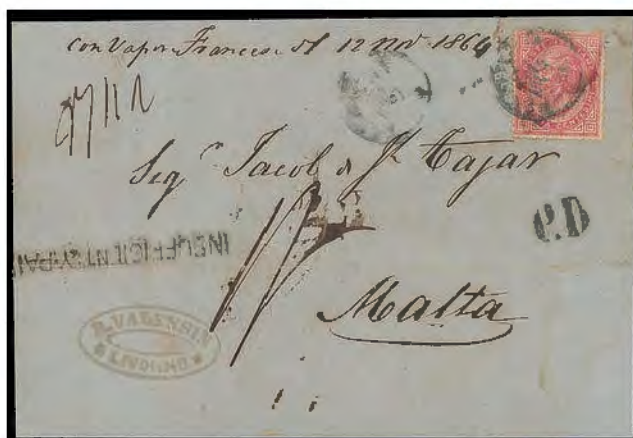 con Vapor Francese d 12 nov 1864
Sigr Jacob d J. Tajar
P.D
INSUFFICIENTLY PAI
Malta
R. VALENSIN
LIVORNO